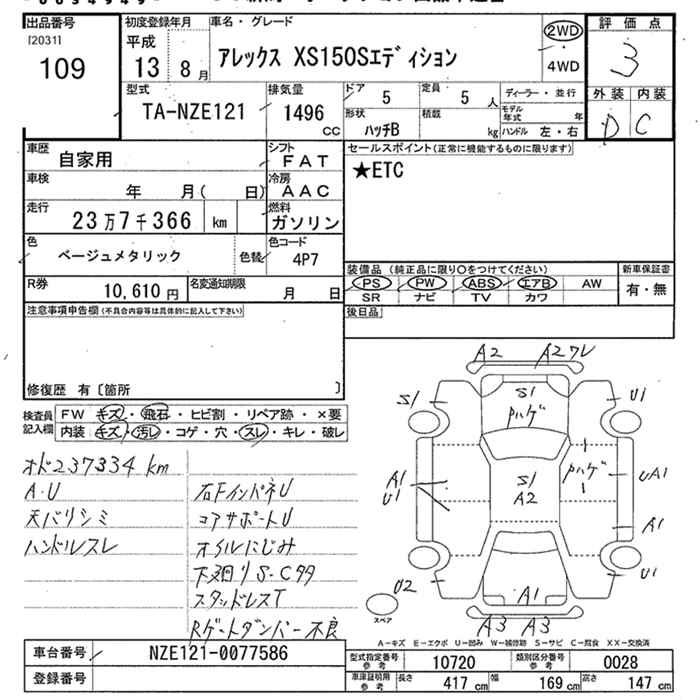 出品番号
[2031]
109
初度登録年月
平成
13 8月
車名・グレード
アレックス XS150Sエディション
2WD
4WD
評価点
3
外装 内装
D C
型式
TA-NZE121
排気量
1496
CC
ドア 5
定員 5 人
形状
ハッチB
積載
kg
ディーラー・並行
モデル年式 年
ハンドル 左・右
車歴
自家用
シフト
FAT
車検
年 月( 日)
冷房
AAC
走行
23万7千366 km
燃料
ガソリン
色
ベージュメタリック
色替
色コード
4P7
R券
10,610 円
名変通知期限
月 日
セールスポイント(正常に機能するものに限ります)
★ETC
装備品 (純正品に限り○をつけてください)
PS PW ABS エアB AW
SR ナビ TV カワ
新車保証書
有・無
後日品
注意事項申告欄(不具合内容等は具体的に記入して下さい)
修復歴 有〔箇所 〕
検査員記入欄
FW キズ・飛石・ヒビ割・リペア跡・×要
内装 キズ・汚レ・コゲ・穴・スレ・キレ・破レ
オド237334 km
A・U
天バリシミ
ハンドルスレ
右FインパネU
コアサポートU
オイルにじみ
下廻りS-Cアト
スタッドレスT
Rゲートダンパー不良
A2 A2ワレ
S1
S1
Pハゲ
U1
Pハゲ
A1
U1
S1
A2
UA1
A1
U2
A1
U1
A3 A3
スペア
A-キズ E-エクボ U-凹み W-補修跡 S-サビ C-腐食 XX-交換済
車台番号
NZE121-0077586
登録番号
型式指定番号 参考 10720
類別区分番号 参考 0028
車庫証明用 参考 長さ 417 cm 幅 169 cm 高さ 147 cm